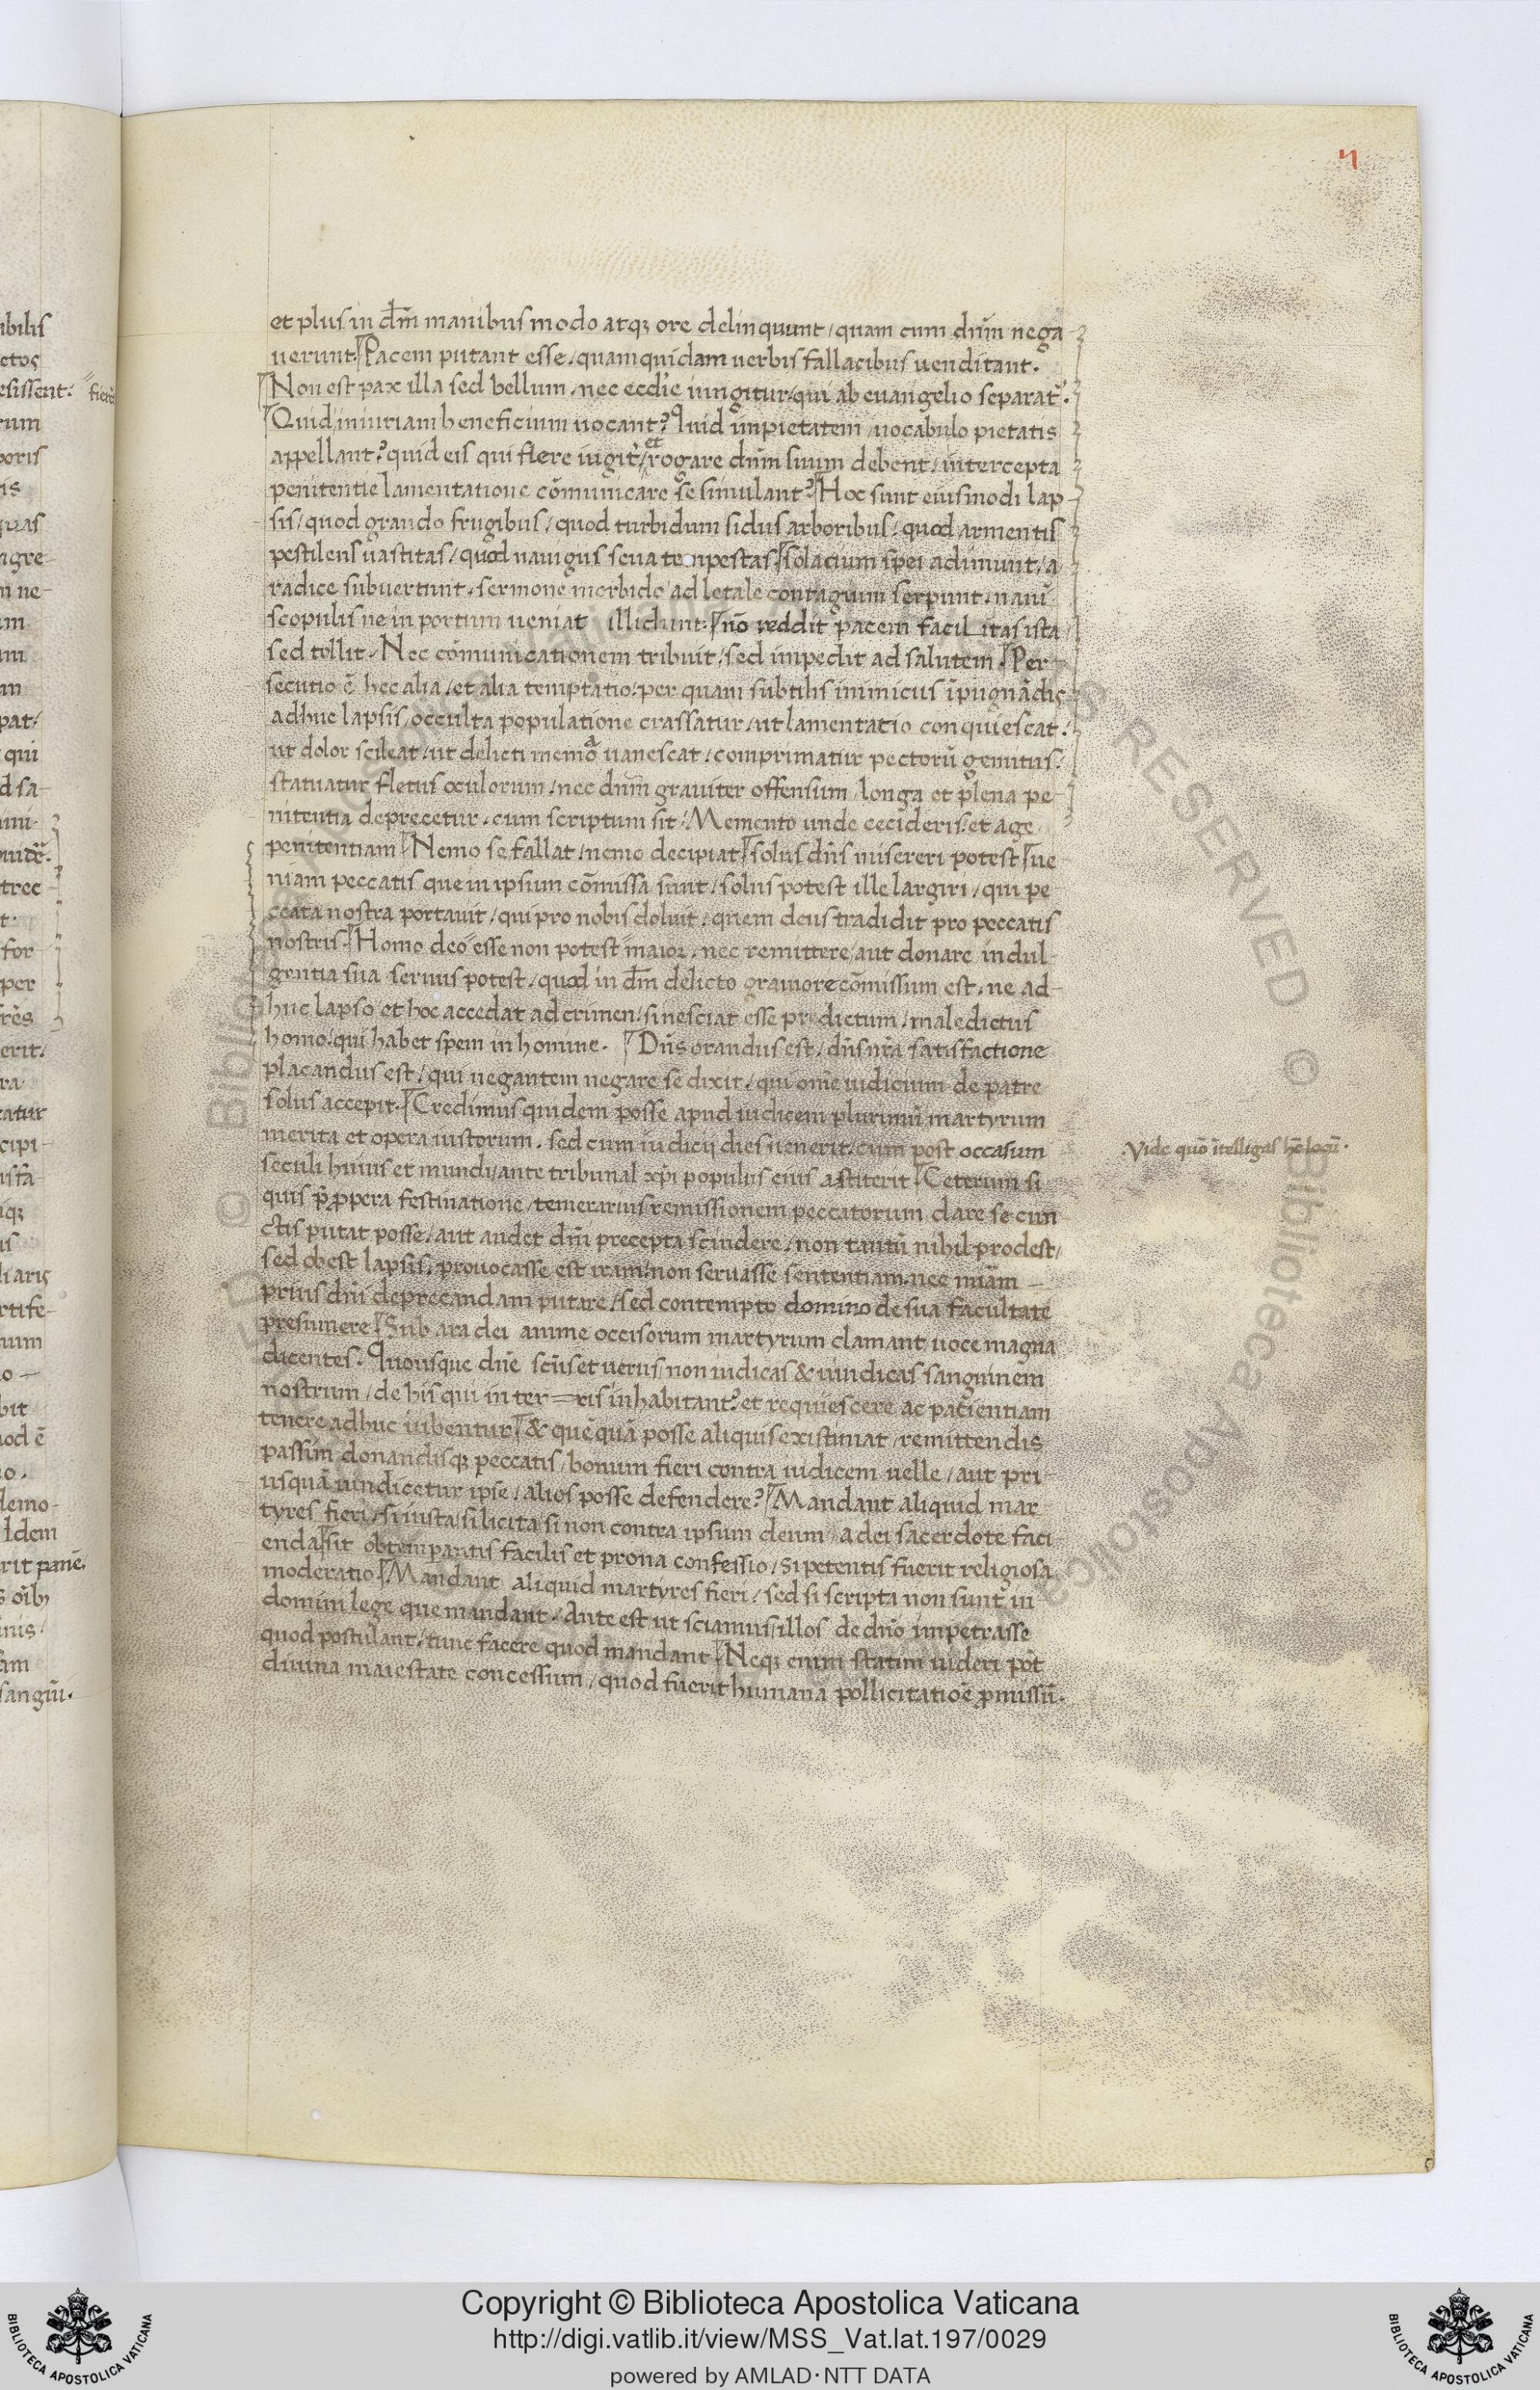 n
et plus in dn̄m manibus modo atqꝫ ore delinquunt / quam cum dn̄m nega
uerunt. Pacem putant esse / quam quidam uerbis fallacibus uenditant.
Non est pax illa sed bellum / nec eccl'ie iungitur / qui ab euangelio separat᷑.
Quid iniuriam beneficium uocant? Quid impietatem / uocabulo pietatis
appellant? quid eis qui flere iugit᷑ / et rogare dn̄m suum debent / intercepta
penitentie lamentatione cōmunicare se simulant? Hoc sunt eiusmodi lap-
sis / quod grando frugibus / quod turbidum sidus arboribus / quod armentis
pestilens uastitas / quod nauigiis seua tempestas. solacium spei adimunt / a
radice subuertunt / sermone morbido / ad letale contagium serpunt / nauī
scopulis ne in portum ueniat illidunt. nō reddit pacem facilitas ista /
sed tollit. Nec cōmunicationem tribuit / sed impedit ad salutem. Per
secutio ē hec alia / et alia temptatio / per quam subtilis inimicus īpugnādis
adhuc lapsis / occulta populatione crassatur / ut lamentatio conquiescat /
ut dolor scileat / ut delicti memoa uanescat / comprimatur pectorū gemitus /
statuatur fletus oculorum / nec dn̄m grauiter offensum / longa et plena pe-
nitentia deprecetur / cum scriptum sit. Memento unde cecideris / et age
penitentiam. Nemo se fallat / nemo decipiat. solus dn̄s misereri potest. ue
niam peccatis que in ipsum cōmissa sunt / solus potest ille largiri / qui pe
ccata nostra portauit / qui pro nobis doluit / quem deus tradidit pro peccatis
nostris. Homo deo esse non potest maior / nec remittere / aut donare indul-
gentia sua seruus potest / quod in dn̄m delicto grauiore cōmissum est / ne ad-
huc lapso et hoc accedat ad crimen / si nesciat esse predictum / maledictus
homo / qui habet spem in homine. Dn̄s orandus est / dn̄s nr̄a satisfactione
placandus est / qui negantem negare se dixit / qui om̄e iudicium de patre
solus accepit. Credimus quidem posse apud iudicem plurimū martyrum
merita et opera iustorum. sed cum iudicij dies uenerit / cum post occasum
seculi huius et mundi / ante tribunal xp̄i populus eius astiterit. Ceterum si
quis p̄ꝓpera festinatione / temerarius remissionem peccatorum dare se cun
ctis putat posse / aut audet dn̄i precepta scindere / non tantū nihil prodest /
sed obest lapsis. prouocasse est iram / non seruasse sententiam / nec mīam —
prius dn̄i deprecandam putare / sed contempto domino de sua facultate
presumere. Sub ara dei anime occisorum martyrum clamant uoce magna
dicentes. Quousque dn̄e sc̄us et uerus / non iudicas & uindicas sanguinem
nostrum / de his qui in ter=ris inhabitant? et requiescere ac patientiam
tenere adhuc iubentur. & quēquā posse aliquis existimat / remittendis
passim donandisqꝫ peccatis / bonum fieri contra iudicem uelle / aut pri
usquā uindicetur ipse / alios posse defendere? Mandant aliquid mar
tyres fieri / si iusta / si licita / si non contra ipsum deum / a dei sacerdote faci
enda. sit obtempantis facilis et prona confessio / si petentis fuerit religiosa
moderatio. Mandant aliquid martyres fieri / sed si scripta non sunt in
domini lege que mandant / Ante est ut sciamus / illos de dn̄o impetrasse
quod postulant / tunc facere quod mandant. Neqꝫ enim statim uideri pōt
diuina maiestate concessum / quod fuerit humana pollicitatiōe ꝓmissū.
Vide quō ītelligas hc̄ locū.
Copyright © Biblioteca Apostolica Vaticana
http://digi.vatlib.it/view/MSS_Vat.lat.197/0029
powered by AMLAD·NTT DATA